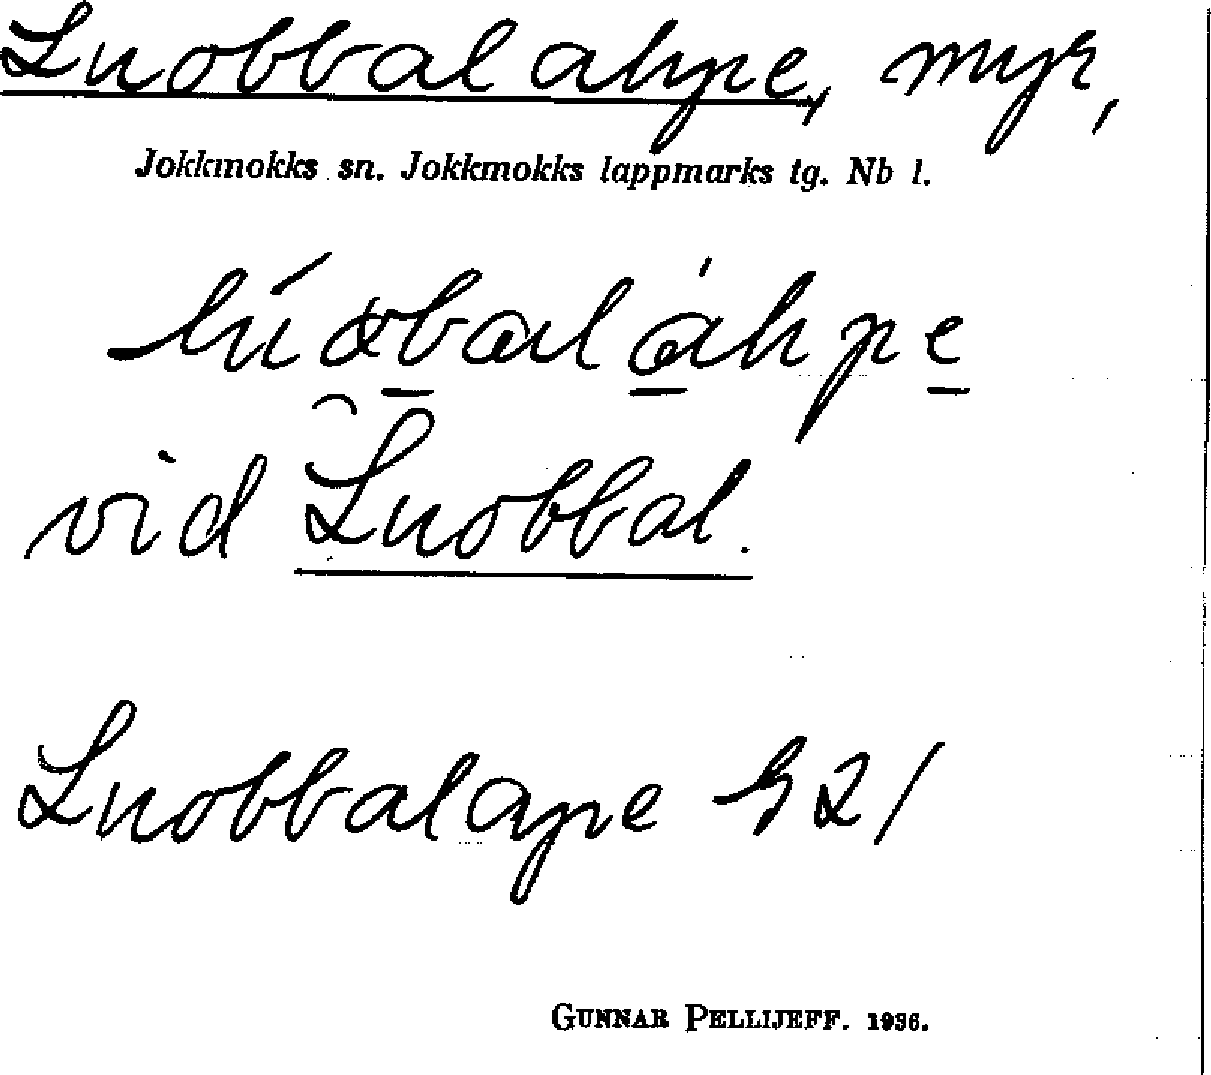 Luobbalahpe, myr,
Jokkmokks sn. Jokkmokks lappmarks tg. Nb l.
lúobaláhpe
vid Luobbal.
Luobbalape
GUNNAR PELLIJEFF. 1936.